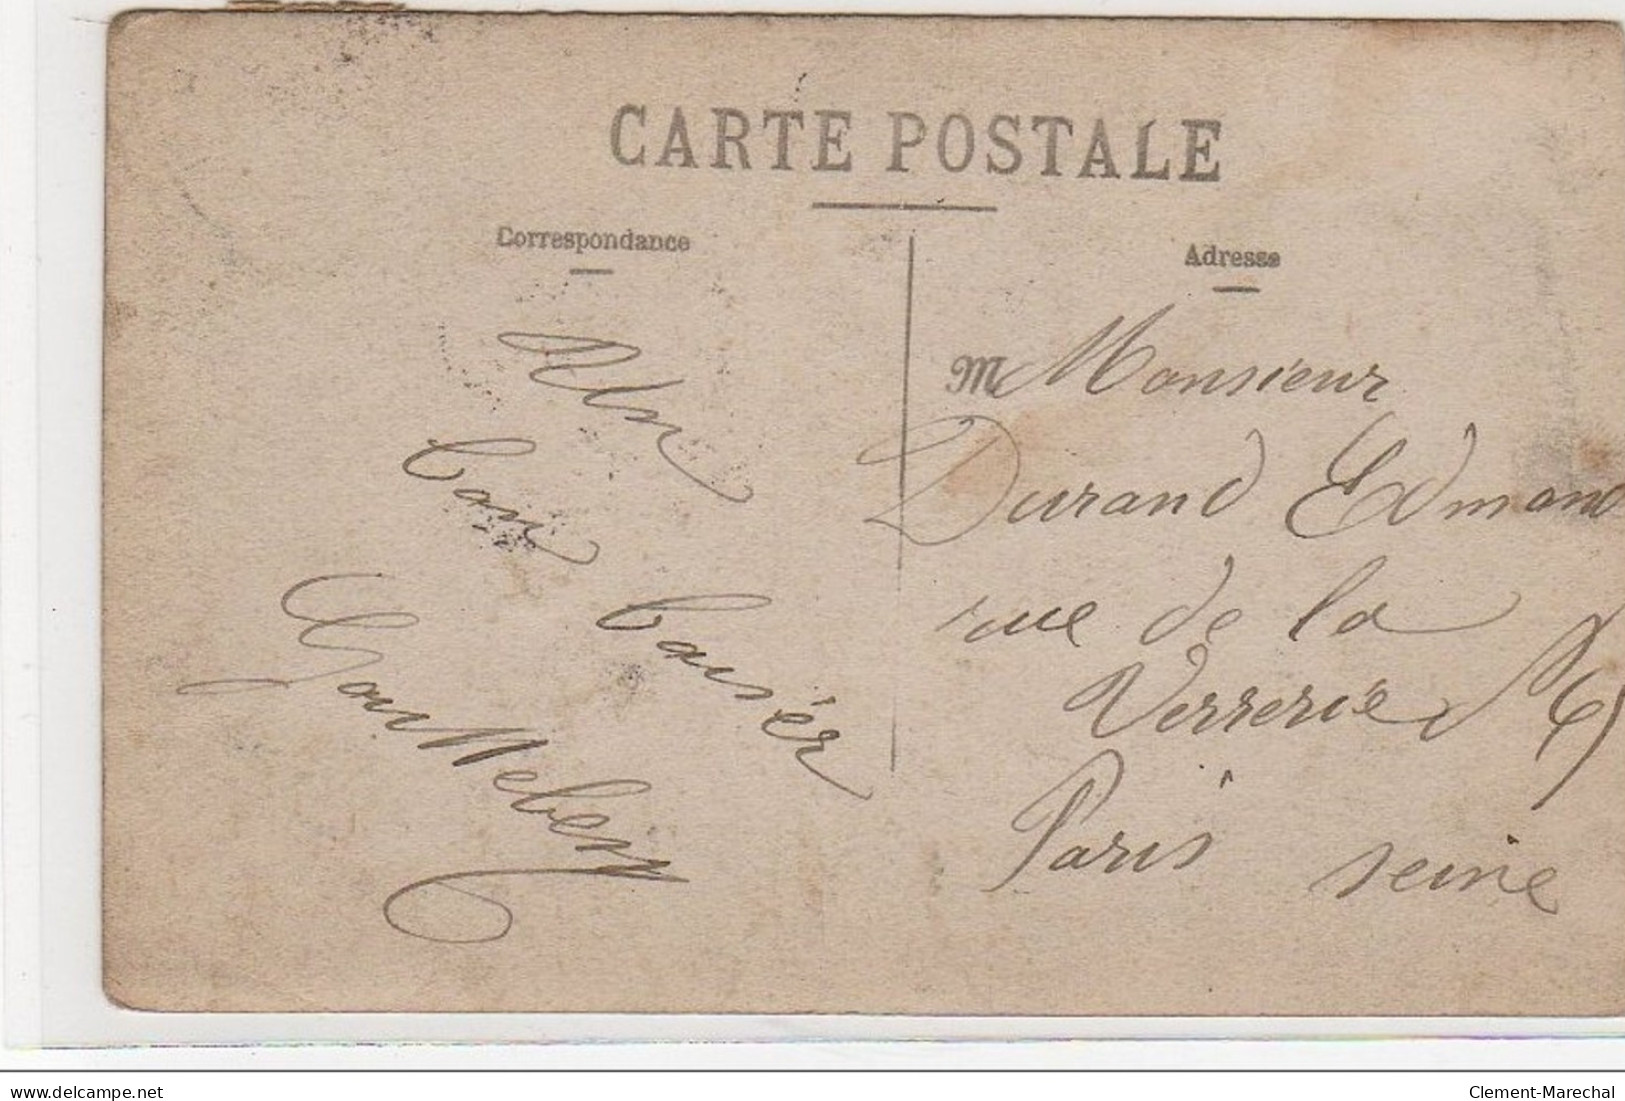 CARTE POSTALE
Correspondance
Un
bon
baisér
Adresse
M Monsieur
Durand Edmond
rue de la
Verrerie
Paris seine
delcampe.net
Clement-Marechal